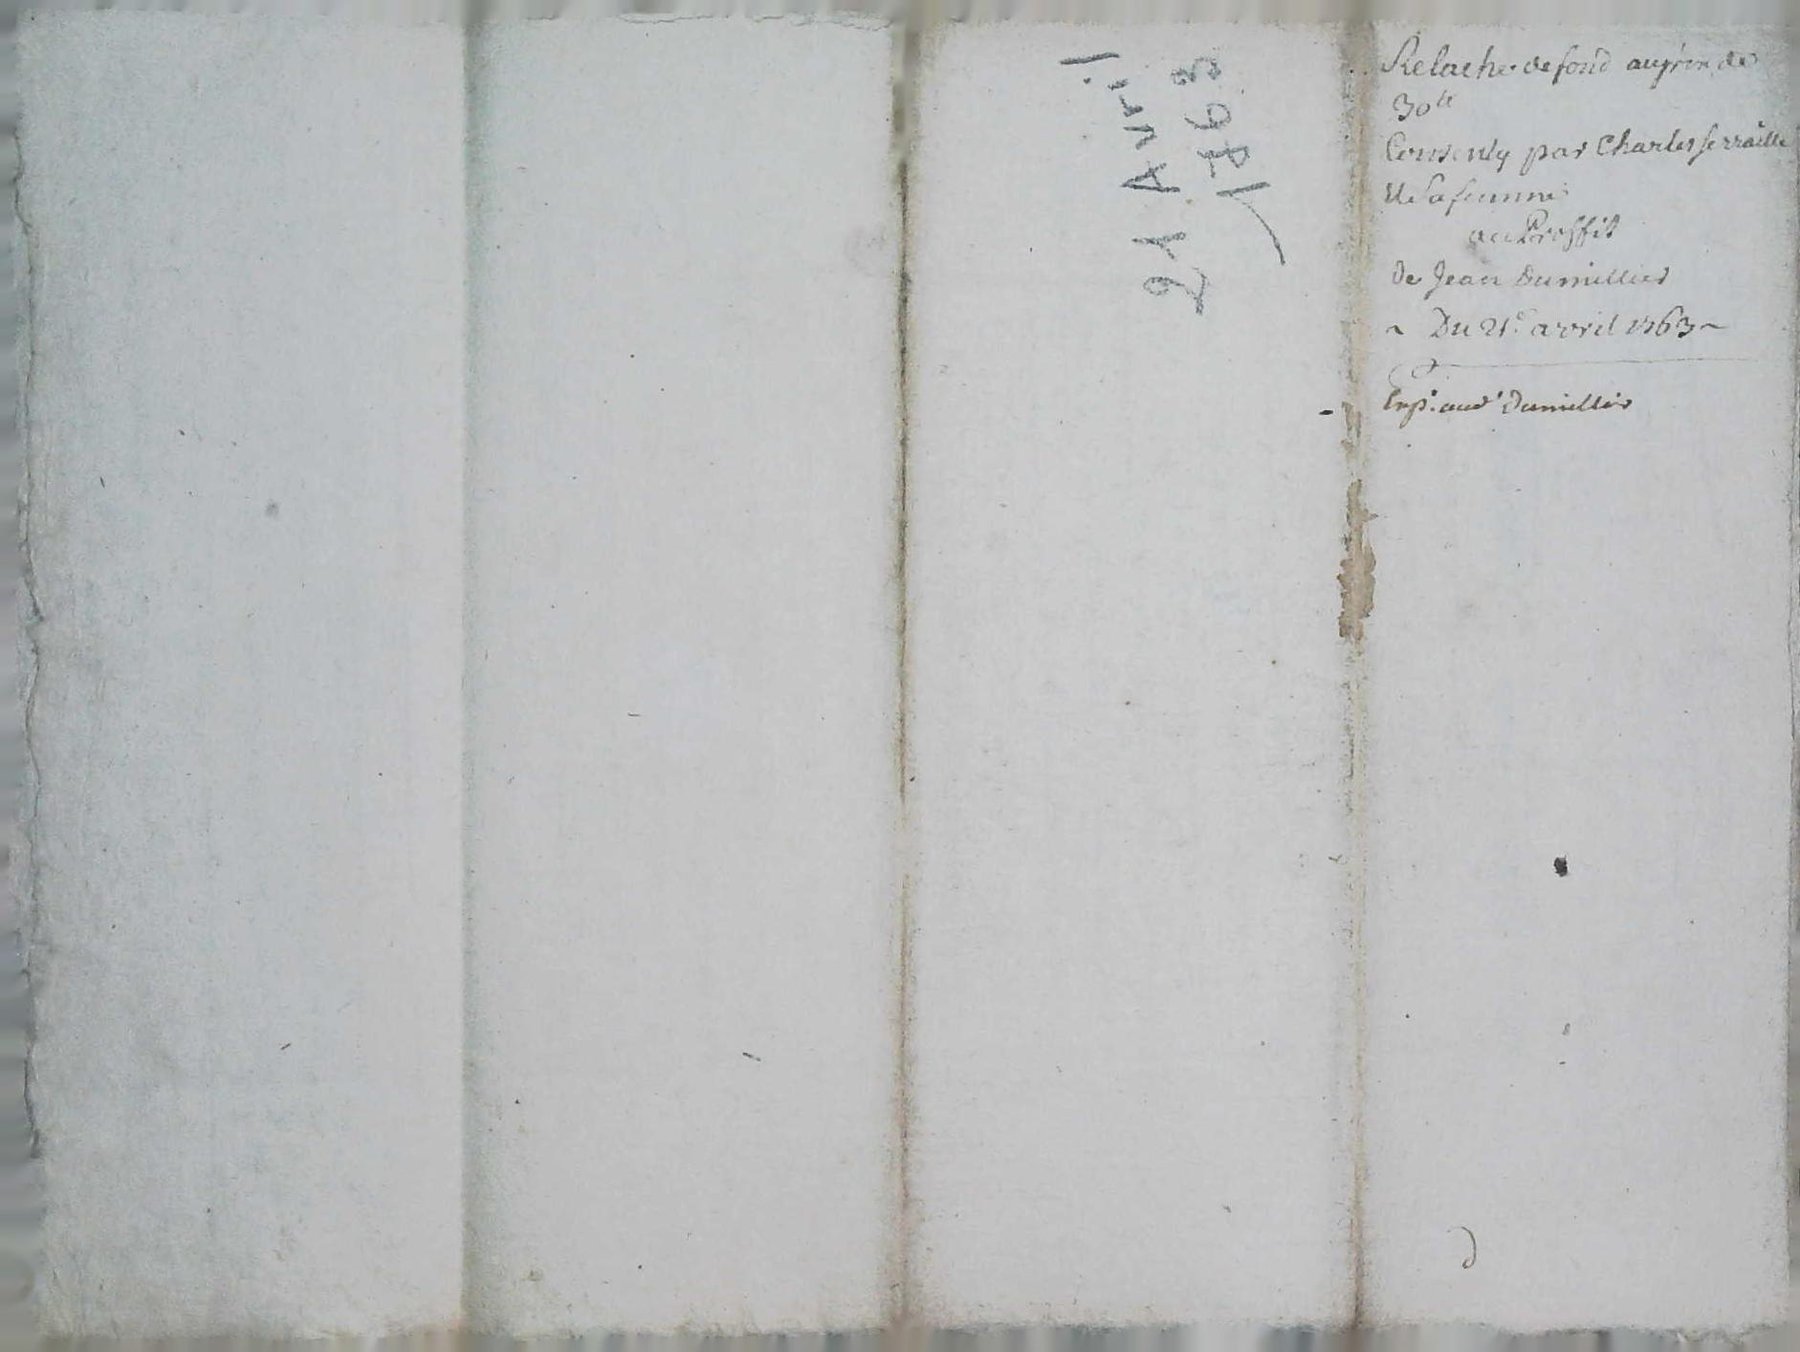 Relache de fond au prix de
30 ll
Consenty par Charles serraille
et sa femme
au Proffit
de Jean Dumellier
~ Du 21e avril 1763 ~
Exp. aud. Dumellier
21 Avril
1763